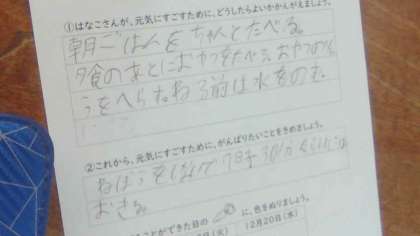 ①はなこさんが、元気にすごすために、どうしたらよいかかんがえましょう。
朝ごはんをちゃんとたべる。
夕食のあとにおやつをたべない おやつの
をへらす。ねる前は水をのむ。
②これから、元気にすごすために、がんばりたいことをきめましょう。
ねぼうをしないで7時30分くらいには
おきる
ことができた日の に、色をぬりましょう。
(火) 12月20日(水)